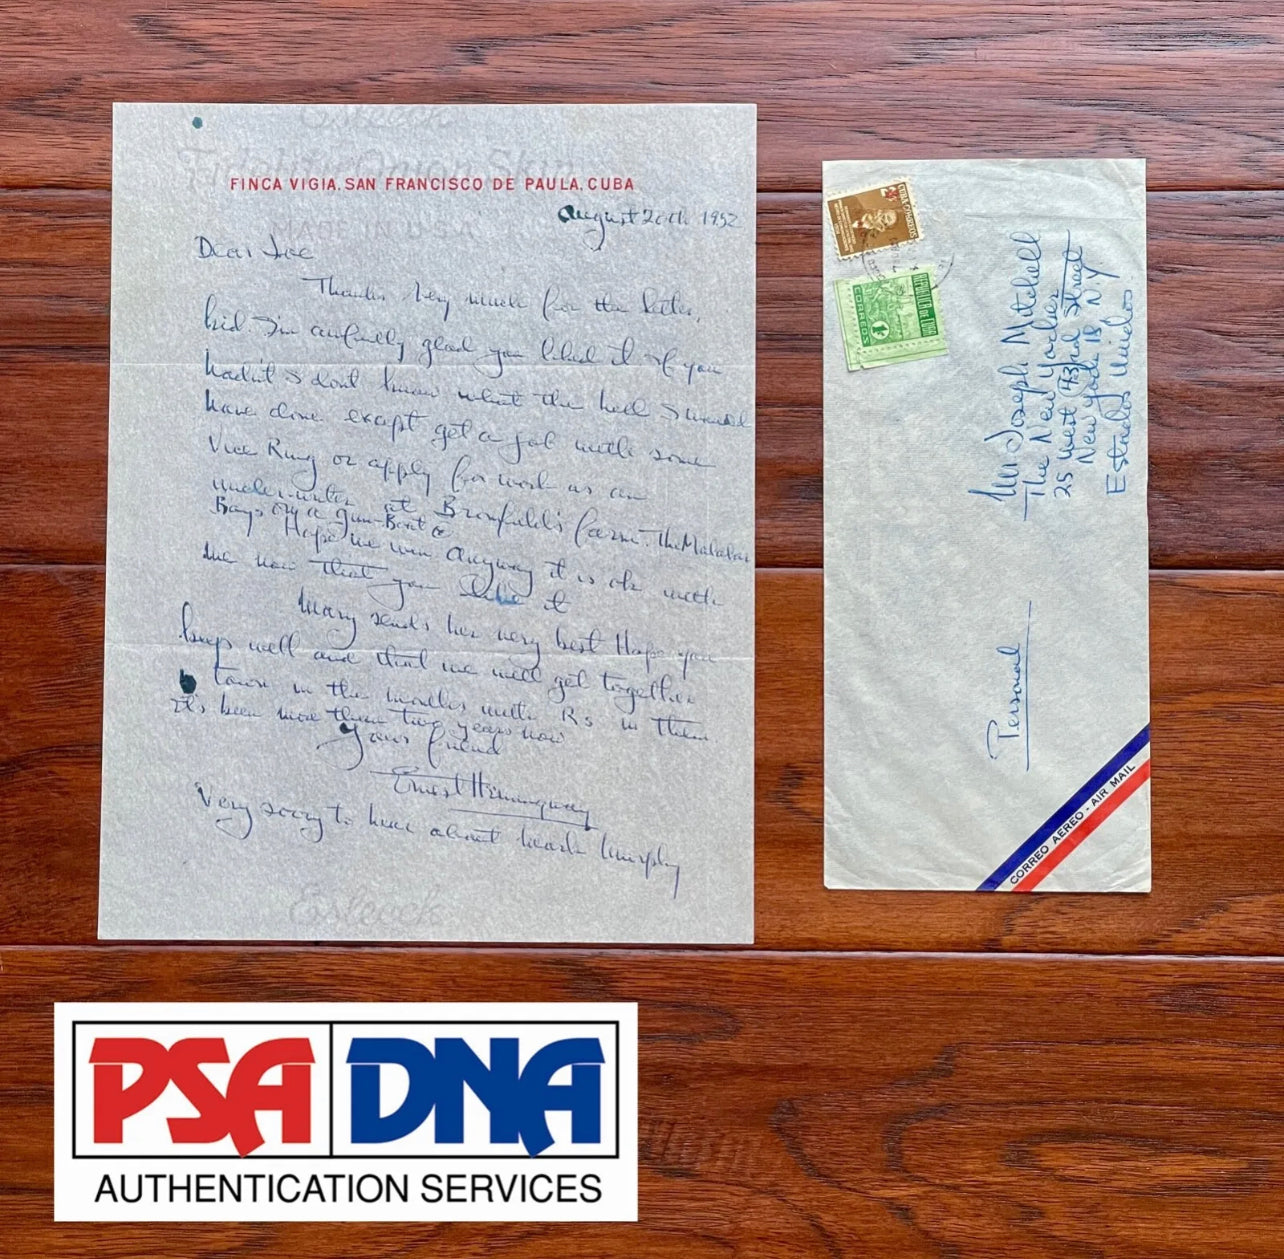 Esleeck
Fidelity Onion Skin
MADE IN U.S.A.
FINCA VIGIA, SAN FRANCISCO DE PAULA, CUBA
August 20th 1952
Dear Joe
Thanks very much for the letter,
kid. I'm awfully glad you liked it. If you
hadn't I don't know what the hell I would
have done except get a job with some
Vice Ring or apply for work as an
under-writer at Bromfield's farm. The Malabar
Boys on a Gun-Boat
Hope we win. Anyway it is ok with
me now that you like it
Mary sends her very best. Hope you
keep well and that we will get together
town in the months with Rs in them
it's been more than two years now
Yours friend
Ernest Hemingway
Very sorry to hear about Mark Murphy
Esleeck
CUBA CORREOS
REPUBLICA DE CUBA
1¢
CORREOS
Mr Joseph Mitchell
The New Yorker
25 West 43rd Street
New York 18 N.Y
Estados Unidos
Personal
CORREO AEREO - AIR MAIL
PSA DNA
AUTHENTICATION SERVICES